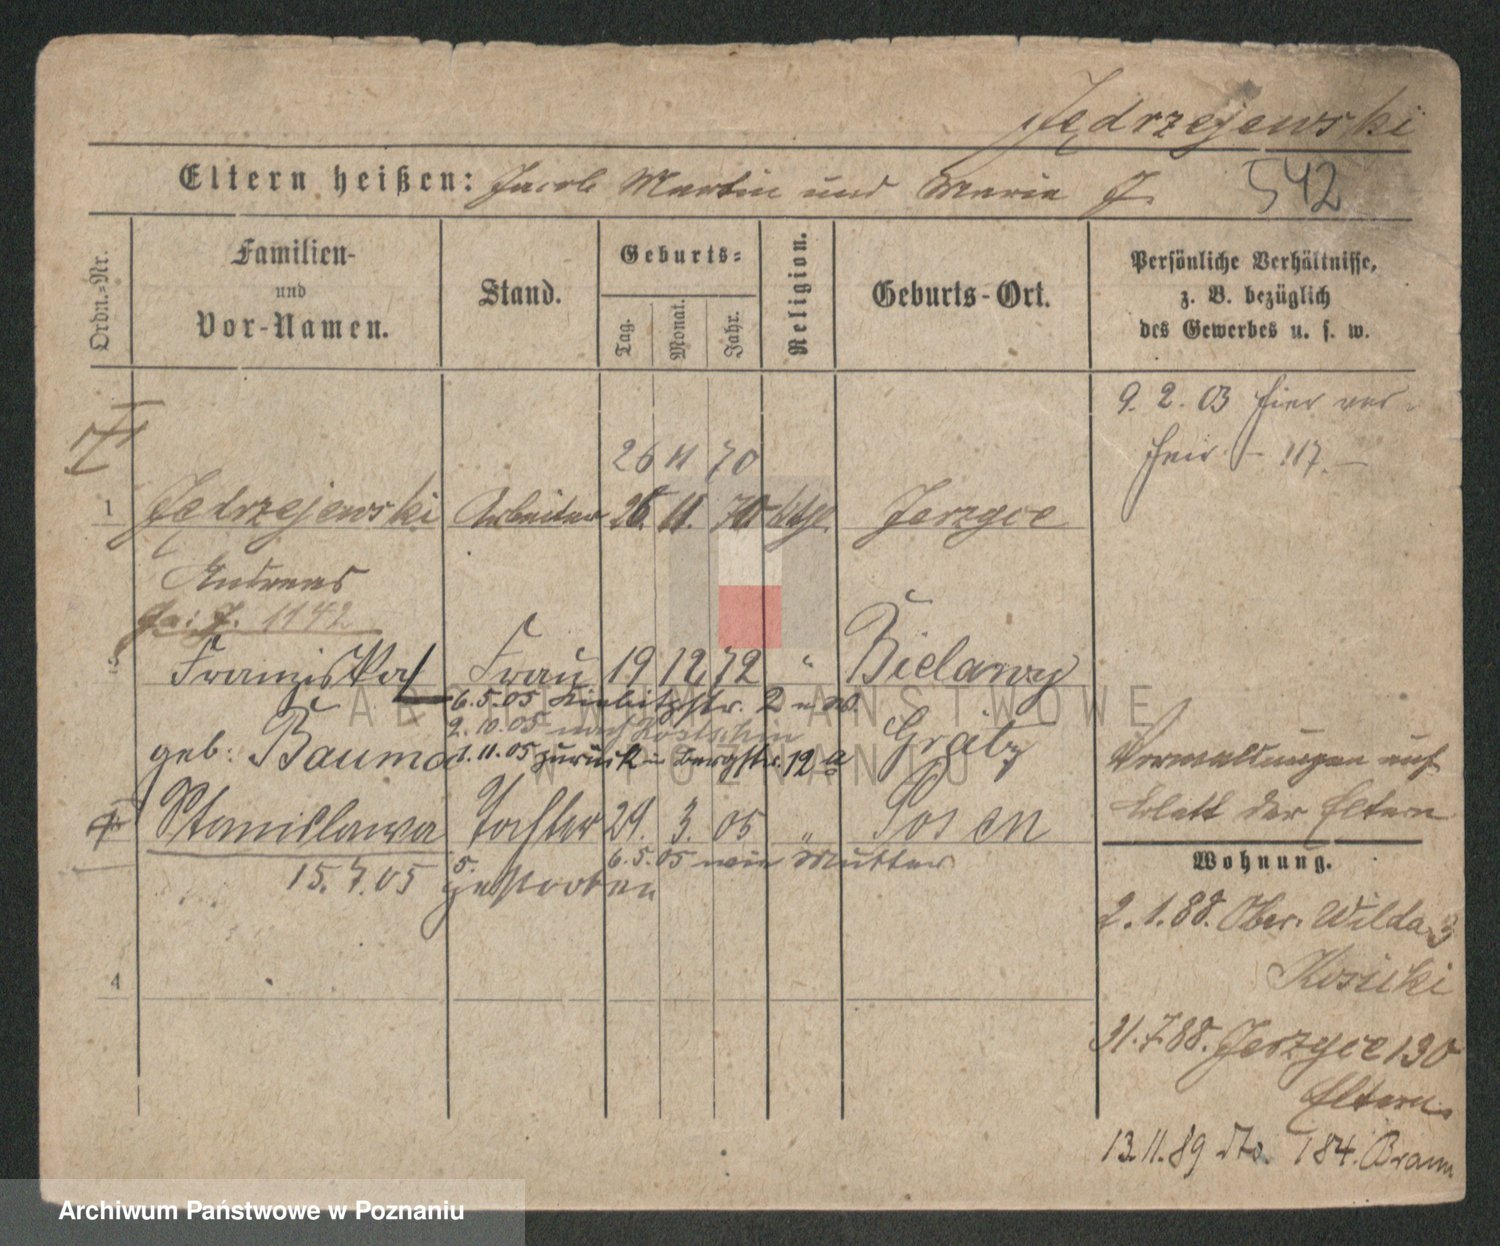 Jędrzejewski
Eltern heißen: Jacob Martin und Maria J.
542
Ordn.-Nr.
Familien-
und
Vor-Namen.
Stand.
Geburts-
Tag.
Monat.
Jahr.
Religion.
Geburts-Ort.
Persönliche Verhältnisse,
z. B. bezüglich
des Gewerbes u. s. w.
9. 2. 03 hier ver-
heir. 117.
26 11 70
1 Jędrzejewski Arbeiter 26. 11. 70 kath. Jerzyce
Andreas
1142
2 Franziska Frau 19 12 72 " Bielawy
6.5.05 Kiebitzstr. 2
2.10.05 nach
geb: Bauma Grätz
1.11.05 zurück Bergstr. 12a
Verwaltungen auf
Blatt der Eltern
Stanislawa Tochter 29. 3. 05 " Posen
6.5.05 wie Mutter
15. 7. 05 gestorben
Wohnung.
2. 1. 88. Ober. Wilda 3
Kosicki
4
31. 7. 88. Jerzyce 130
Eltern.
13. 11. 89 dto. 184. Braun
ARCHIWUM PAŃSTWOWE
W POZNANIU
Archiwum Państwowe w Poznaniu